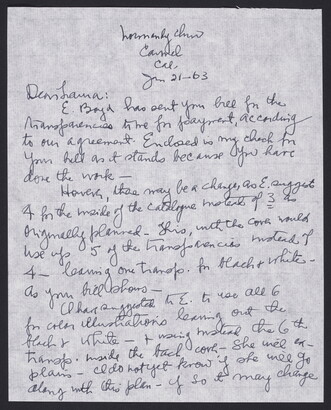 Normandy Inn
Carmel
Cal.
Jan 21-63
Dear Laura:
E. Boyd has sent your bill for the
transparencies to me for payment, according
to our agreement. Enclosed is my check for
your bill as it stands because you have
done the work —
However, there may be a change, as E. suggests
4 for the inside of the catalogue instead of 3 as
originally planned - This, with the cover would
use up 5 of the transparencies instead of
4 — leaving one transp. for black & white -
as your bill shows -
I have suggested to E. to use all 6
for color illustrations leaving out the
black & white - & using instead the 6th
transp. inside the back cover - She will ex-
plain - I do not yet know if she will go
along with this plan - if so it may change